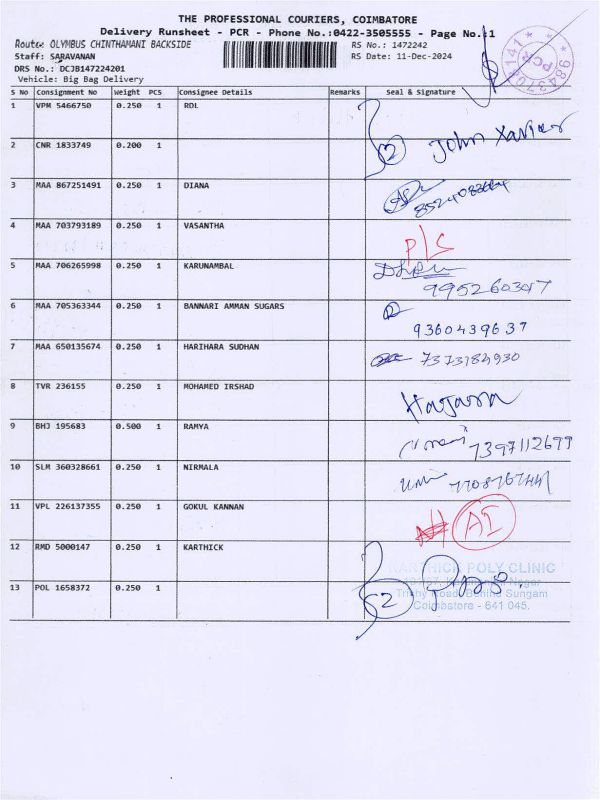 THE PROFESSIONAL COURIERS, COIMBATORE
Delivery Runsheet - PCR - Phone No.:0422-3505555 - Page No.:1
Route: OLYMBUS CHINTHAMANI BACKSIDE RS No.: 1472242
Staff: SARAVANAN RS Date: 11-Dec-2024
DRS No.: DCJB147224201
Vehicle: Big Bag Delivery
S No Consignment No Weight PCS Consignee Details Remarks Seal & Signature
1 VPM 5466750 0.250 1 RDL
2 CNR 1833749 0.200 1 2 John Xavier
3 MAA 867251491 0.250 1 DIANA
4 MAA 703793189 0.250 1 VASANTHA P/C
5 MAA 706265998 0.250 1 KARUNAMBAL
9952603017
6 MAA 705363344 0.250 1 BANNARI AMMAN SUGARS
9360439637
7 MAA 650135674 0.250 1 HARIHARA SUDHAN 7373184930
8 TVR 236155 0.250 1 MOHAMED IRSHAD Hajara
9 BHJ 195683 0.500 1 RAMYA 7397112699
10 SLM 360328661 0.250 1 NIRMALA
11 VPL 226137355 0.250 1 GOKUL KANNAN AI
12 RMD 5000147 0.250 1 KARTHICK
KARTHICK POLY CLINIC
13 POL 1658372 0.250 1 2
Coimbatore - 641 045.